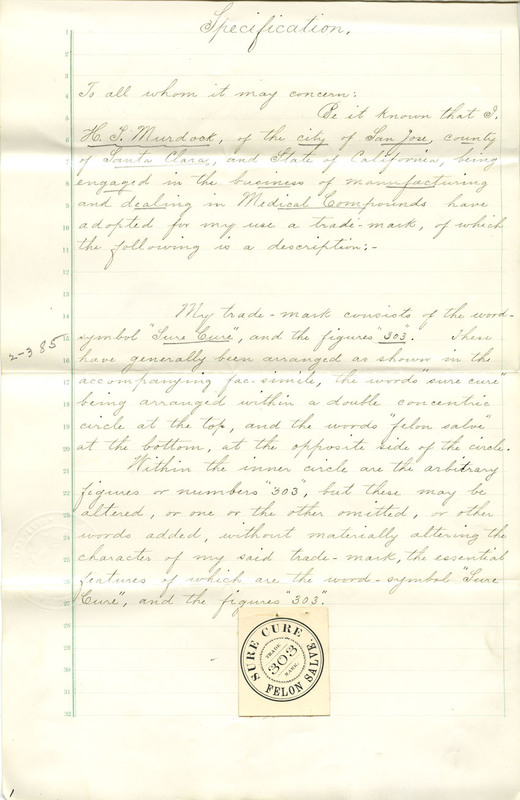 Specification.
To all whom it may concern:
Be it known that I,
H. S. Murdock, of the city of San Jose, county
of Santa Clara, and State of California, being
engaged in the business of manufacturing
and dealing in Medical Compounds have
adopted for my use a trade-mark, of which
the following is a description:-
My trade-mark consists of the word-
symbol "Sure Cure", and the figures "303". These
2-385
have generally been arranged as shown in the
accompanying fac-simile, the words "sure cure"
being arranged within a double concentric
circle at the top, and the words "felon salve"
at the bottom, at the opposite side of the circle.
Within the inner circle are the arbitrary
figures or numbers "303", but these may be
altered, or one or the other omitted, or other
words added, without materially altering the
character of my said trade-mark, the essential
features of which are the word-symbol "Sure
Cure", and the figures "303".
SURE CURE
TRADE
303
MARK.
FELON SALVE.
1
2
3
4
5
6
7
8
9
10
11
12
13
14
15
16
17
18
19
20
21
22
23
24
25
26
27
28
29
30
31
32